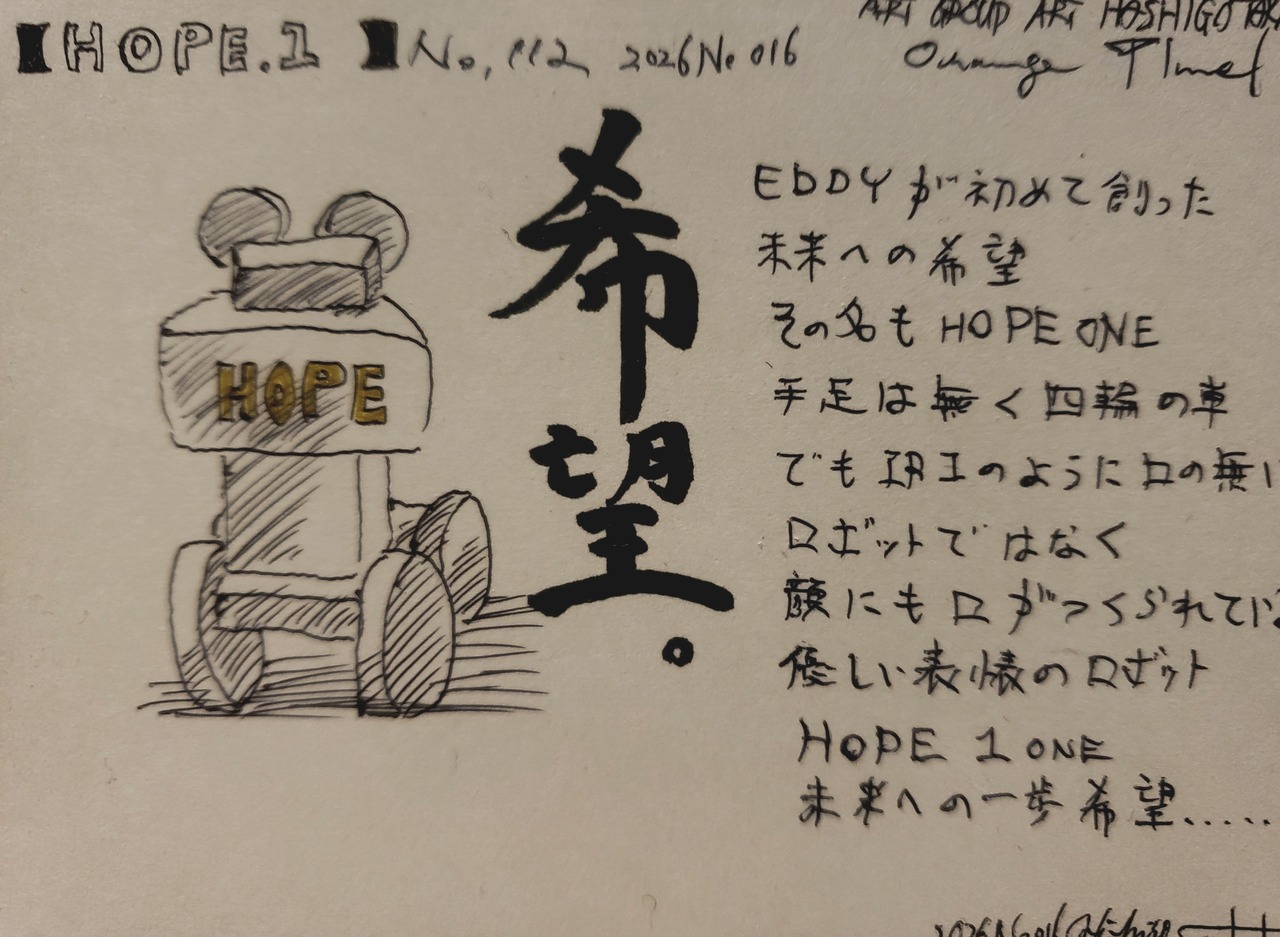 【HOPE.1】No,112 2026No016
ART GROUP ART HASHIGOTAK
Orange Time
HOPE
希望。
EDDYが初めて創った
未来への希望
その名もHOPE ONE
手足は無く四輪の車
でも のように口の無い
ロボットではなく
顔にも口がつくられてい
優しい表情のロボット
HOPE 1 ONE
未来への一歩希望.....
2026No016